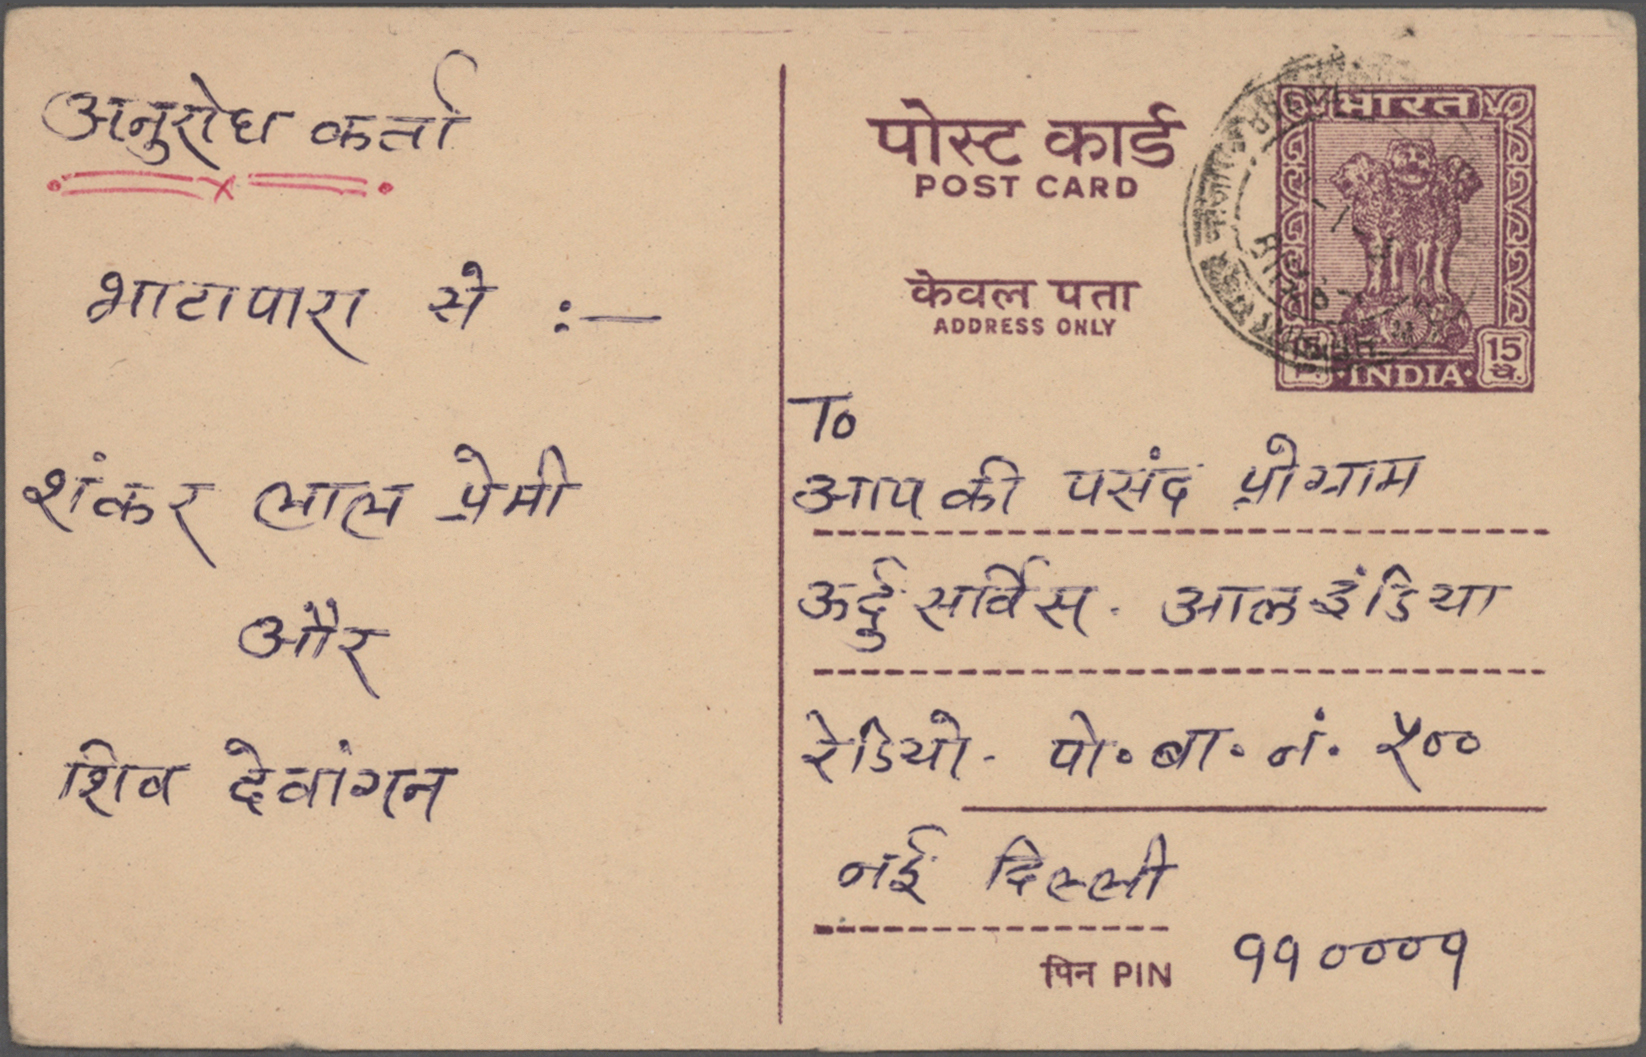 अनुरोध कर्ता
भाटापारा से :—
शंकर लाल प्रेमी
और
शिव देवांगन
पोस्ट कार्ड
POST CARD
केवल पता
ADDRESS ONLY
भारत
15
15
INDIA
To
आप की पसंद प्रोग्राम
ऊर्दु सर्विस. आल इंडिया
रेडियो. पो॰ बा॰ नं. ५००
नई दिल्ली
पिन PIN ११०००१